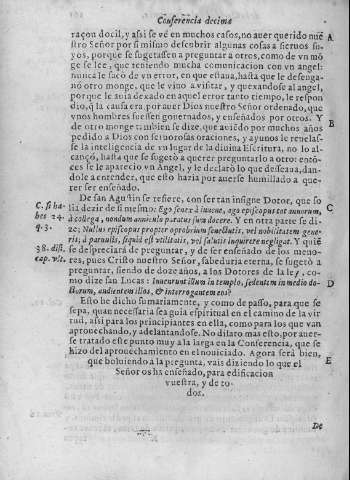 Conferencia decima
raçon docil, y assi se vè en muchos casos, no auer querido nuè
stro Señor por si mismo descubrir algunas cosas a sieruos su-
yos, porque se sugetassen a preguntar a otros, como de vn mō
ge se lee, que teniendo mucha comunicacion con vn angel:
nunca le sacò de vn error, en que estaua, hasta que le desenga-
nò otro monge, que le vino a visitar, y quexandose al angel,
porque le auia dexado en aquel error tanto tiempo, le respon
dio, q̃ la causa era por auer Dios nuestro Señor ordenado, que
vnos hombres fuessen gouernados, y enseñados por otros. Y
de otro monge tambien se dize, que auiēdo por muchos años
pedido a Dios con feruorosas oraciones, y ayunos le reuelas-
se la inteligencia de vn lugar de la diuina Escritura, no lo al-
cançó, hasta que se sugetò a querer preguntarlo a otro: entō-
ces se le aparecio vn Angel, y le declarò lo que desseaua, dan-
dole a entender, que esto hazia por auerse humillado a que-
rer ser enseñado.
De san Agustin se refiere, con ser tan insigne Dotor, que so
lia dezir de si mesmo: Ego senex à iuuene, ago episcopus tot annorum,
à collega, nondum anniculo paratus sum docere. Y en otra parte se di-
ze; Nullus episcopus propter oprobrium senectutis, vel nobilitatem gene-
ris; à paruulis, siquid est vtilitatis, vel salutis inquirere negligat. Y quiē
se despreciarà de preguntar, y de ser enseñado de los meno-
res, pues Christo nuestro Señor, sabeduria eterna, se sugetò a
preguntar, siendo de doze años, a los Dotores de la ley, co-
mo dize san Lucas: Inuenerunt illum in templo, sedentem in medio do-
ctorum, audientem illos, & interrogantem eos?
Esto he dicho sumariamente, y como de passo, para que se
sepa, quan necessaria sea guia espiritual en el camino de la vir
tud, assi para los principiantes en ella, como para los que van
aprouechando, y adelantandose. No dilato mas esto, por auer-
se tratado este punto muy a la larga en la Conferencia, que se
hizo del aprouechamiento en el nouiciado. Agora serà bien,
que boluiendo a la pregunta, vais diziendo lo que el
Señor os ha enseñado, para edificacion
vuestra, y de to-
dos.
De
A
B
C
D
E
C. si ha-
bes 24.
q. 3.
38. dist.
cap. vlt.